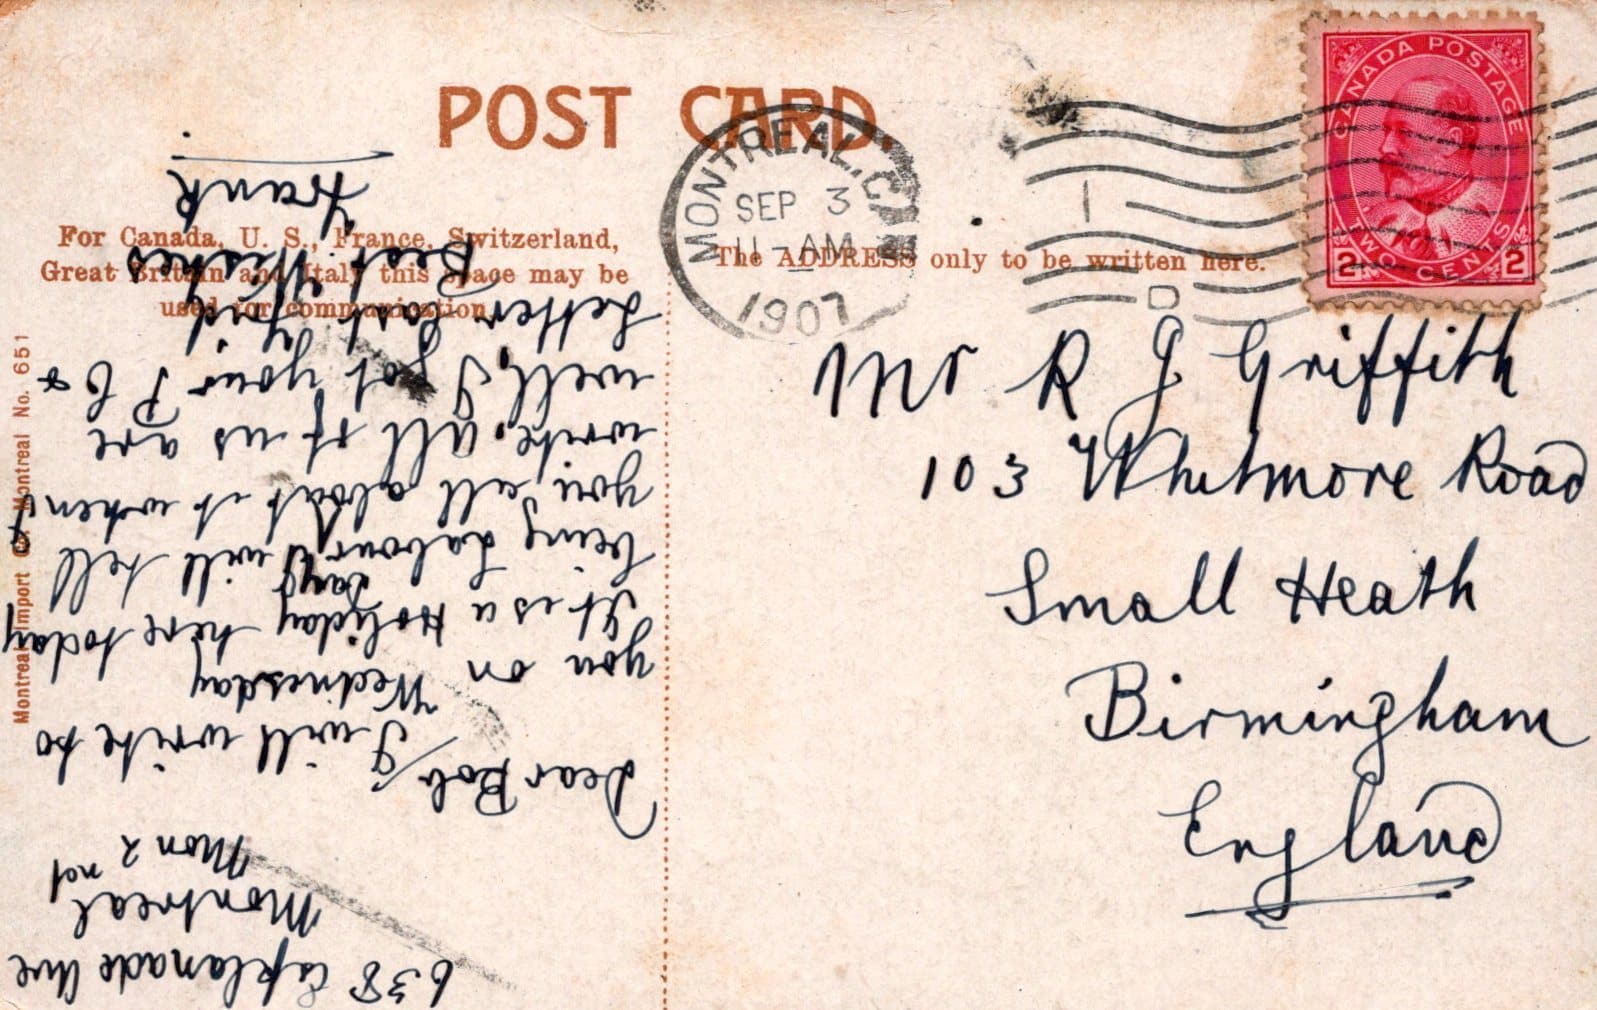 POST CARD.
For Canada, U. S., France, Switzerland,
Great Britain and Italy this space may be
used for communication.
The ADDRESS only to be written here.
MONTREAL, CAN
SEP 3
11-AM
1907
CANADA POSTAGE
2 TWO CENTS 2
Mr R J Griffith
103 Whitmore Road
Small Heath
Birmingham
England
Montreal Import Co. Montreal No. 651
638 Esplanade Ave
Montreal
Mon 2nd
Dear Bob/
I will write to
you on Wednesday
It is a Holiday here today
being Labour Day I will tell
you all about it when I
write, all of us are
well, I got your P C &
Letter last
Best Wishes
Frank